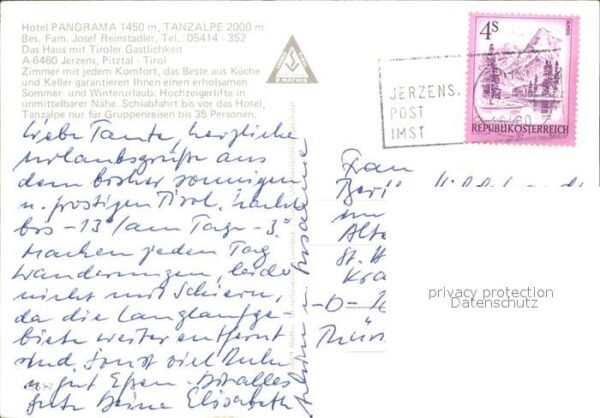 Hotel PANORAMA 1450 m, TANZALPE 2000 m
Bes. Fam. Josef Reinstadler, Tel.: 05414 - 352
Das Haus mit Tiroler Gastlichkeit
A-6460 Jerzens, Pitztal - Tirol
Zimmer mit jedem Komfort, das Beste aus Küche
und Keller garantieren Ihnen einen erholsamen
Sommer- und Winterurlaub. Hochzeigerlifte in
unmittelbarer Nähe. Schiabfahrt bis vor das Hotel,
Tanzalpe nur für Gruppenreisen bis 35 Personen.
R MATHIS
4S
REPUBLIK ÖSTERREICH
JERZENS,
POST
IMST
Liebe Tante, herzliche
Urlaubsgrüße aus
dem bisher sonnigen
u. frostigen Tirol. Nachts
bis -13° am Tage -3.°
Machen jeden Tag
Wanderungen, leider
nicht mit Schiern,
da die Langlaufge
biete weiter entfernt
sind. Sonst viel Ruhe
u gut Essen. Alles
Gute Deine Elisabeth
Frau
privacy protection
Datenschutz